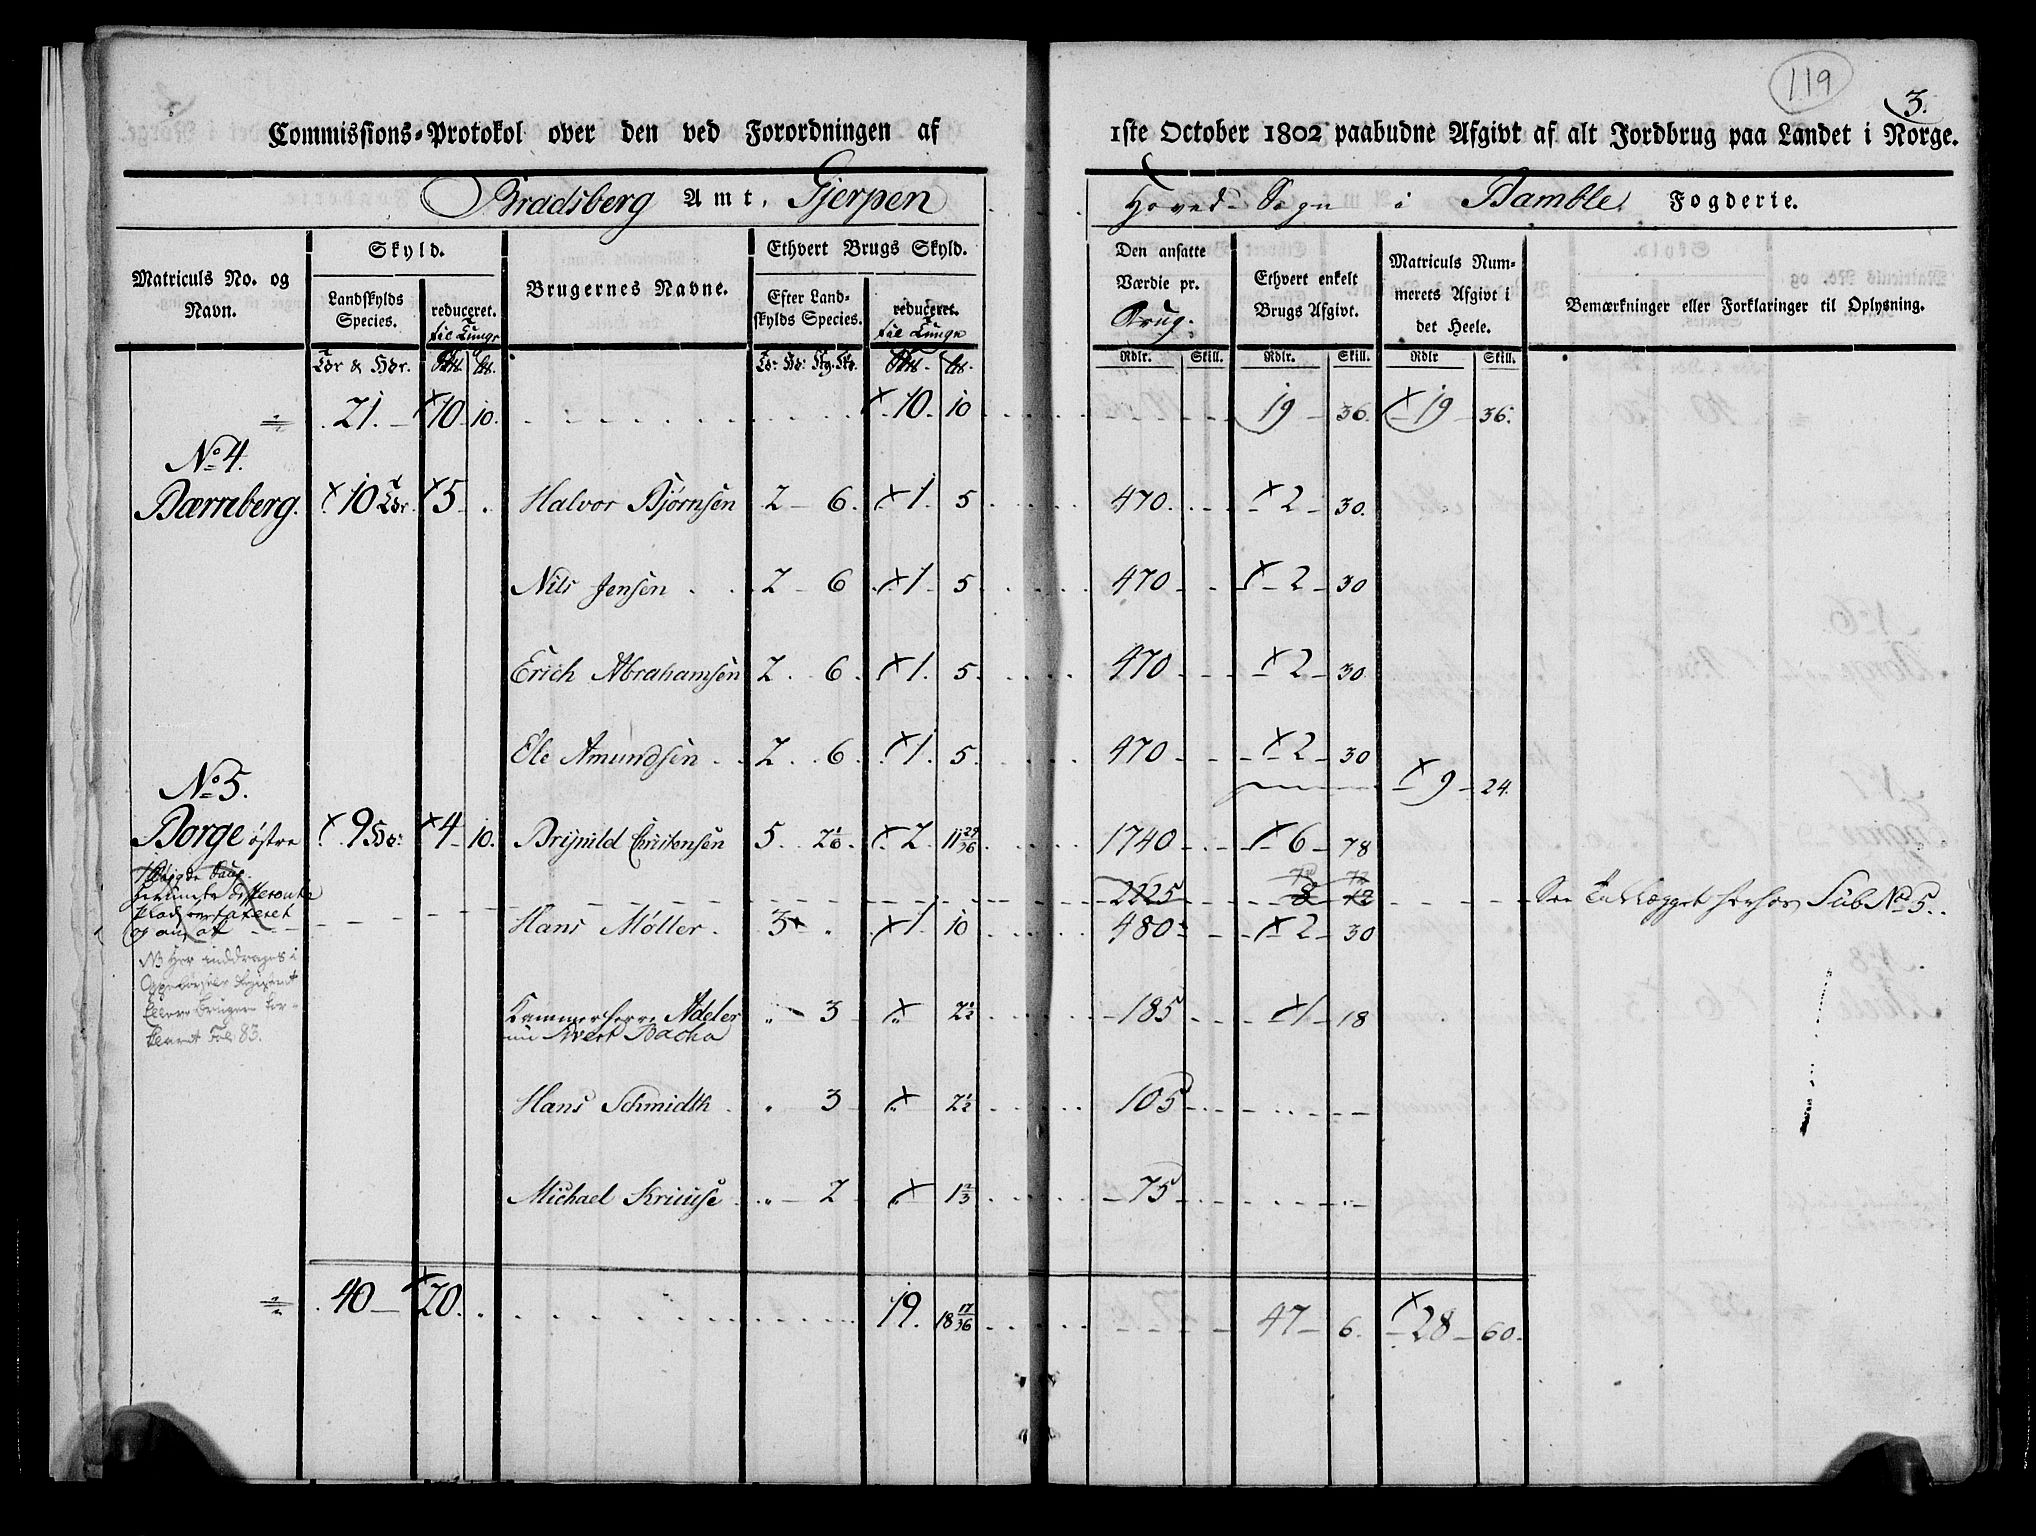 119
3.
Commissions-Protokol over den ved Forordningen af 1ste October 1802 paabudne Afgivt af alt Jordbrug paa Landet i Norge.
Bradsberg Amt, Gjerpen Hoved-Sogn i Bamble Fogderie.
Matriculs No. og Navn. Skyld. Brugernes Navne. Ethvert Brugs Skyld. Den ansatte Værdie pr. Brug. Ethvert enkelt Brugs Afgivt. Matriculs Nummerets Afgivt i det Heele. Bemærkninger eller Forklaringer til Oplysning.
Landskylds Species. reduceret. til Tunge Efter Landskylds Species. reduceret. til Tunge
Rdlr. Skill. Rdlr. Skill. Rdlr Skill.
21. 10 10. 10. 10 19 36. 19 36.
No 4.
Bærreberg. 10 5 Halvor Bjørnsen 2 6. 1. 5 470. 2 30.
Nils Jensen 2 6 1. 5 470 2 30
Erich Abrahamsen 2. 6. 1. 5. 470 2 30
Ole Amundsen 2. 6. 1. 5. 470 2 30
9 24.
No 5.
Borge østre 9 4 10. Brynild Christensen 5 2 1/6 2. 11 29/36 1740 6 78
2225 8 See Tillægget herhos Sub No 5.
Hans Møller. 3 1 10 480 2 30
NB Her inddrages i
Fol. 83.
Kammerherre Adeler 3 2 1/2 185 1 18
nu Evert Backa
Hans Schmidth 3 2 1/2 105
Michael Kruuse 2 1 2/3 75
40 20. 19. 18 17/36 47 6. 28 60.